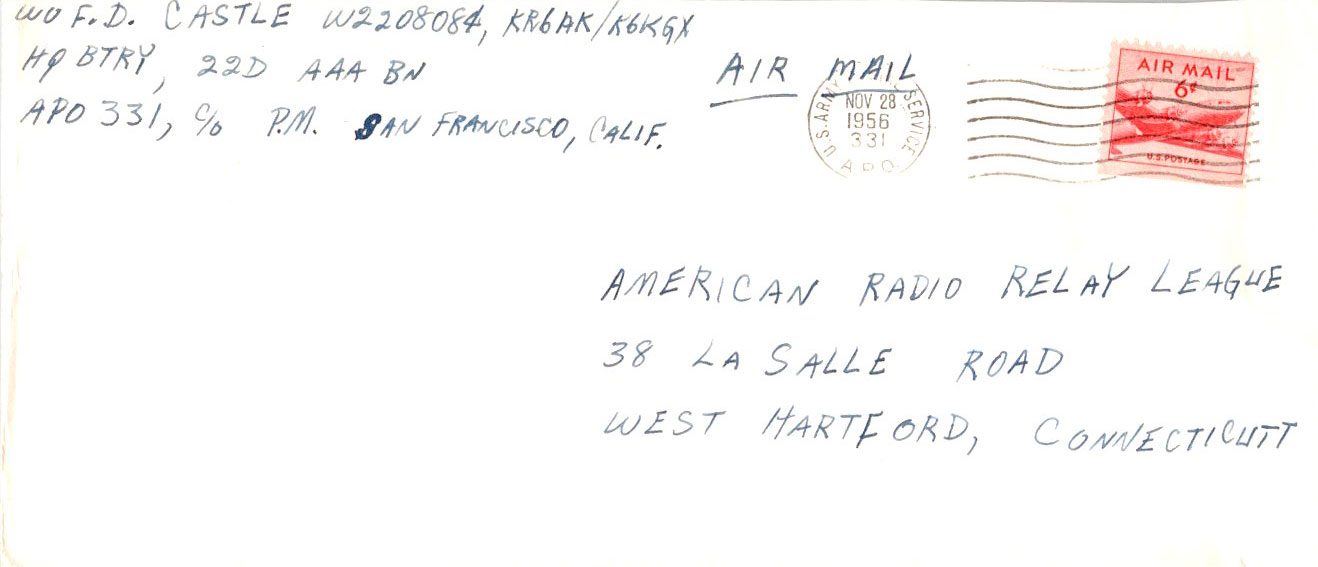 WO F.D. CASTLE W2208084, KR6AK/K6KGX
HQ BTRY, 22D AAA BN
APO 331, c/o P.M. SAN FRANCISCO, CALIF.
AIR MAIL
U.S. ARMY SERVICE
NOV 28
1956
331
A.P.O.
AIR MAIL
6¢
U.S. POSTAGE
AMERICAN RADIO RELAY LEAGUE
38 LA SALLE ROAD
WEST HARTFORD, CONNECTICUTT